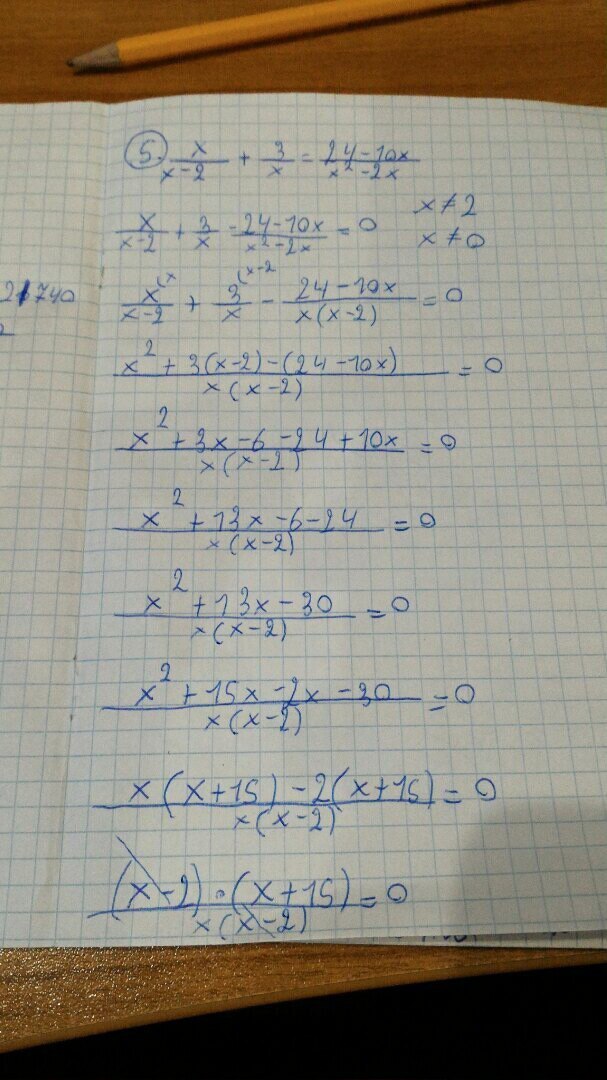 5. x/(x-2) + 3/x = (24-10x)/(x²-2x)
x/(x-2) + 3/x - (24-10x)/(x²-2x) = 0 x≠2
x≠0
x^(x/(x-2) + 3^(x-2/x - (24-10x)/(x(x-2)) = 0
(x²+3(x-2)-(24-10x))/(x(x-2)) = 0
(x²+3x-6-24+10x)/(x(x-2)) = 0
(x²+13x-6-24)/(x(x-2)) = 0
(x²+13x-30)/(x(x-2)) = 0
(x²+15x-2x-30)/(x(x-2)) = 0
(x(x+15)-2(x+15))/(x(x-2)) = 0
((x-2)·(x+15))/(x(x-2)) = 0